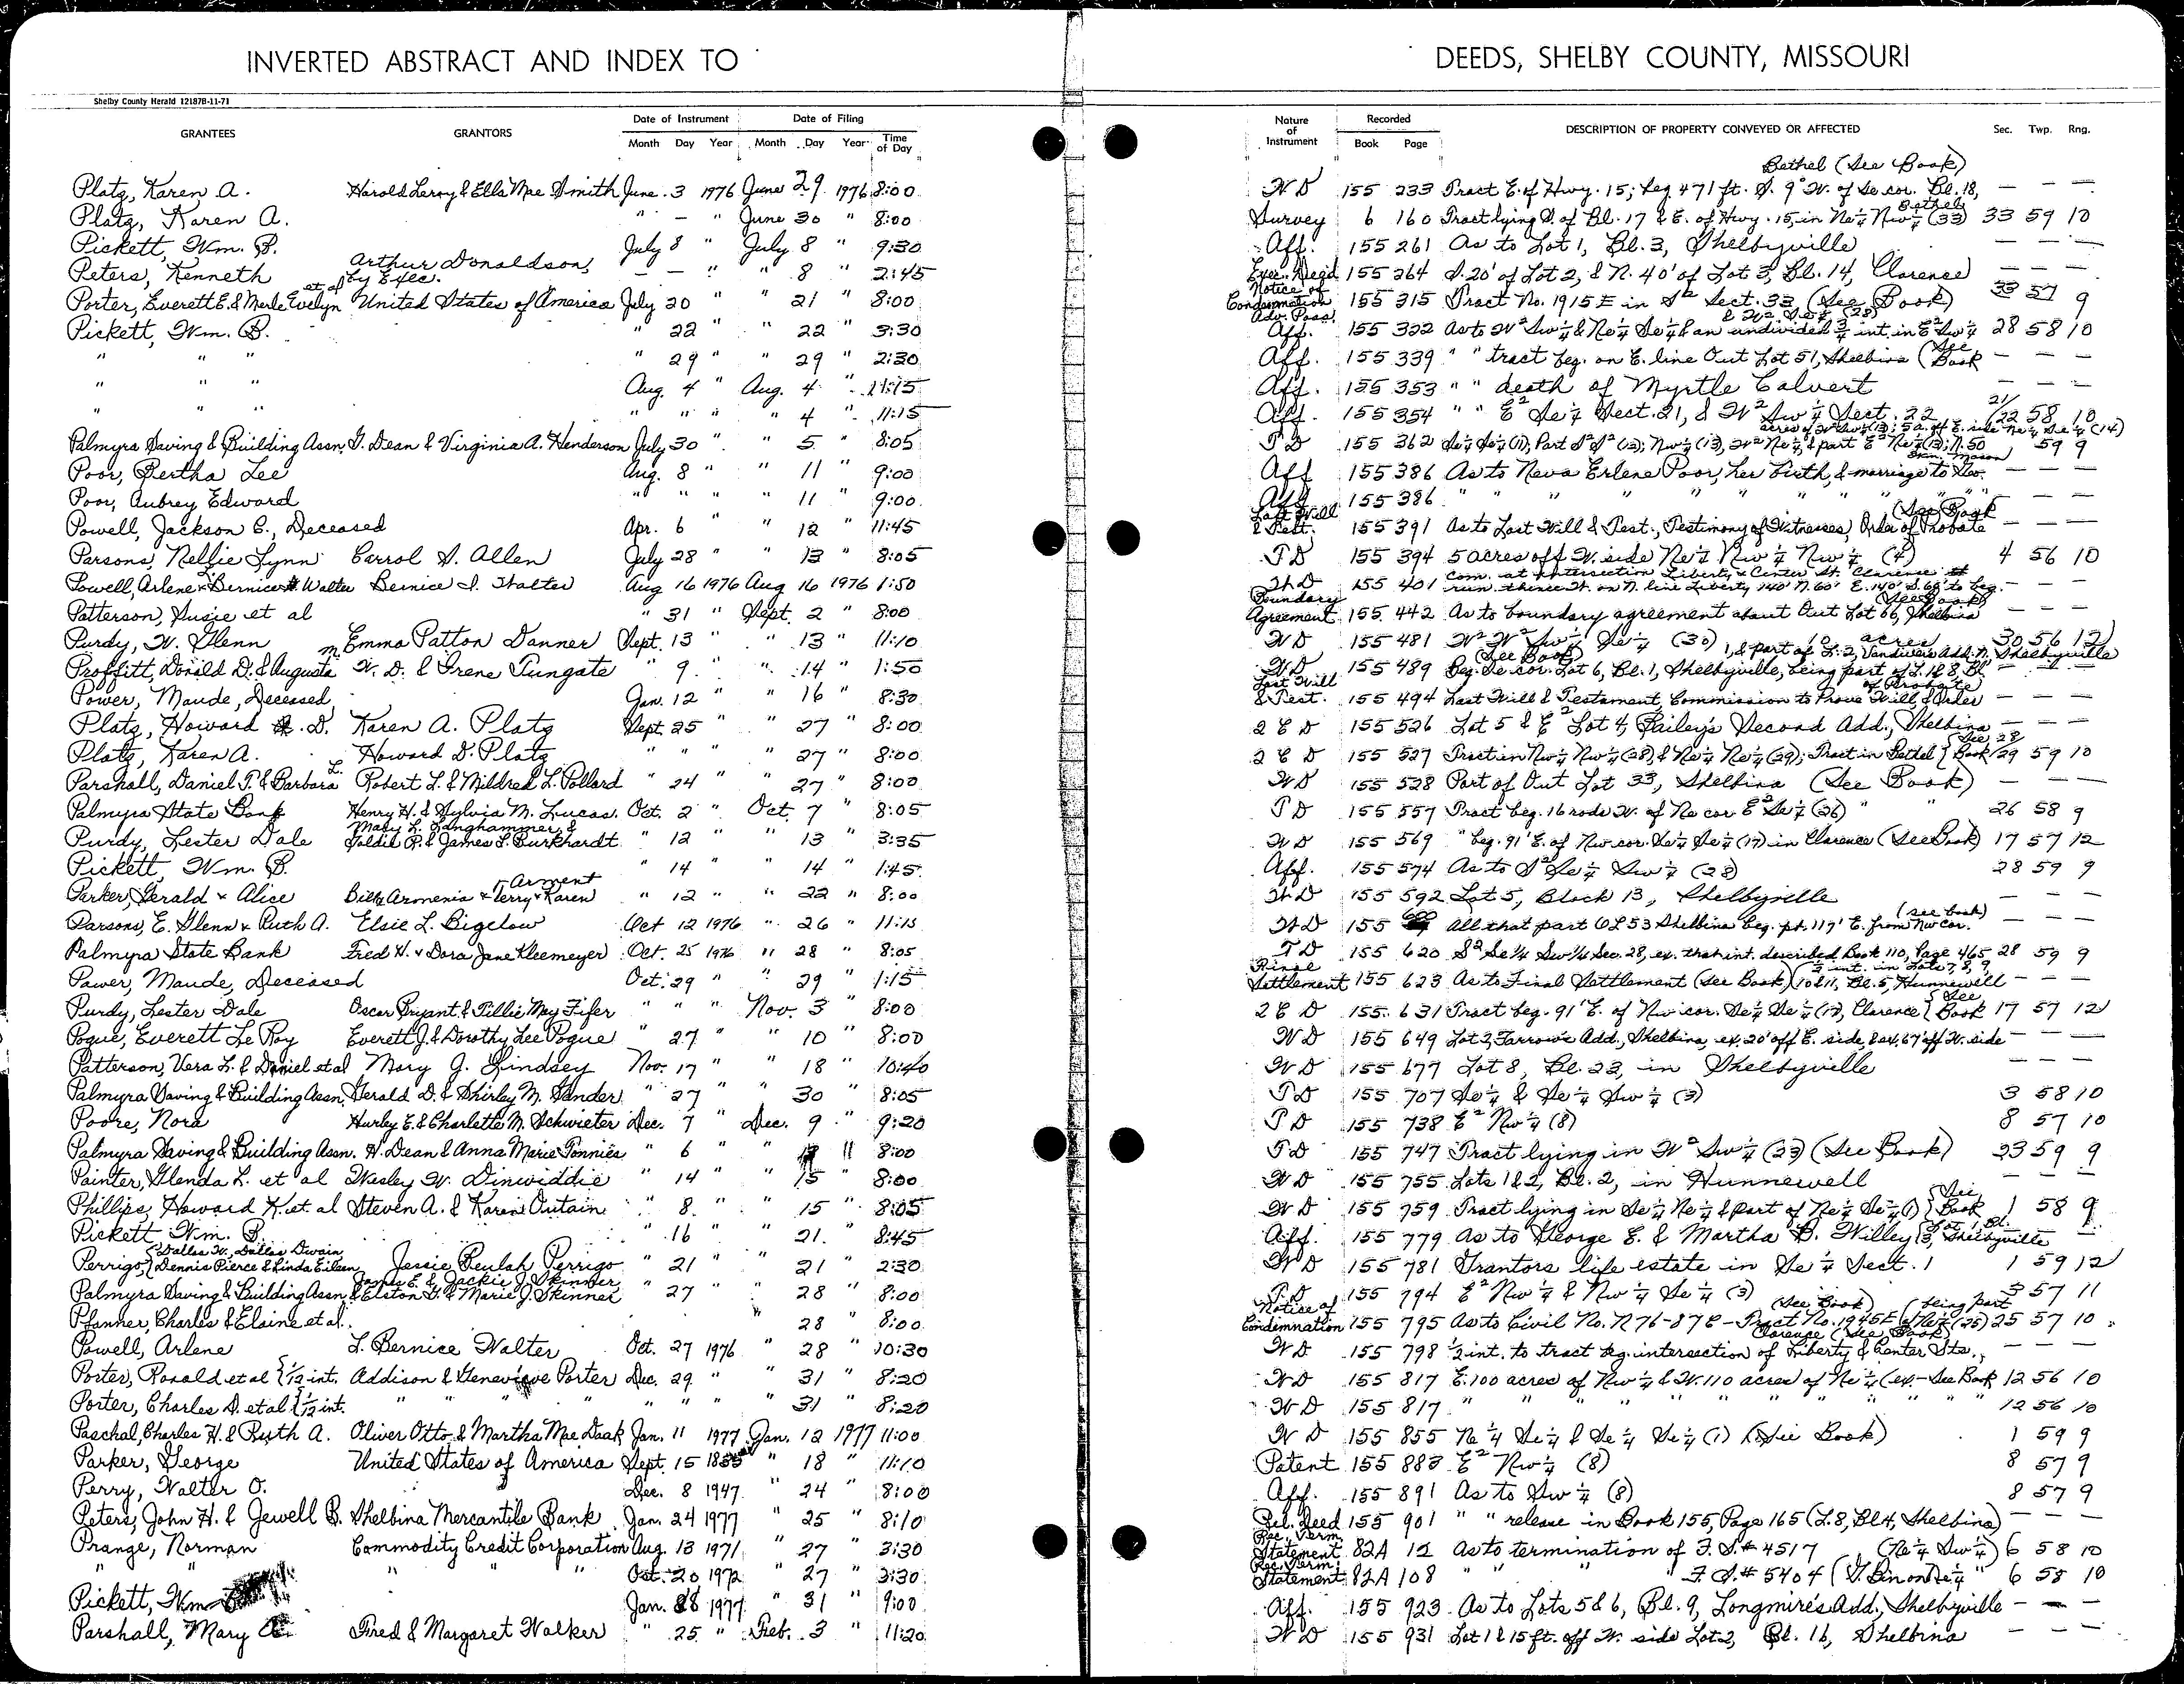 INVERTED ABSTRACT AND INDEX TO
DEEDS, SHELBY COUNTY, MISSOURI
Shelby County Herald 12187B-11-71
GRANTEES GRANTORS Date of Instrument Month Day Year Date of Filing Month Day Year Time of Day Nature of Instrument Recorded Book Page DESCRIPTION OF PROPERTY CONVEYED OR AFFECTED Sec. Twp. Rng.
Bethel (See Book)
Platz, Karen A. Harold Leroy & Ella Mae Smith June 3 1976 June 29 1976 8:00 WD 155 233 Tract E. of Hwy. 15; beg 471 ft. S. 9° W. of Se cor. Bl. 18, — — —
Platz, Karen A. " — " June 30 " 8:00 Survey 6 160 Tract lying S. of Bl. 17 & E. of Hwy. 15, in Ne¼ Nw¼ (33) Bethel 33 59 10
Pickett, Wm. B. July 8 " July 8 " 9:30 Aff. 155 261 As to Lot 1, Bl. 3, Shelbyville — — —
Peters, Kenneth Arthur Donaldson, by Exec. — — " " 8 " 2:45 Exec. Deed 155 264 S. 20' of Lot 2, & N. 40' of Lot 3, Bl. 14, Clarence — — —
Porter, Everett E. & Merle Evelyn et al United States of America July 20 " " 21 " 8:00 Notice of Condemnation Adv. Poss. 155 315 Tract No. 1915E in S² Sect. 33 (See Book) 33 57 9
Pickett, Wm. B. " 22 " " 22 " 3:30 Aff. 155 322 As to W² Sw¼ & Ne¼ Se¼ & an undivided ¾ int. in E² Sw¼ & W² Se¼ (28) 28 58 10
" " " " 29 " " 29 " 2:30 Aff. 155 339 " " tract beg. on E. line Out Lot 51, Shelbina (See Book — — —
" " " Aug. 4 " Aug. 4 " 11:15 Aff. 155 353 " " death of Myrtle Calvert — — —
" " " " " " " 4 " 11:15 Aff. 155 354 " " E² Se¼ Sect. 21, & W² Sw¼ Sect. 22 21/22 58 10
Palmyra Saving & Building Assn. G. Dean & Virginia A. Henderson July 30 " " 5 " 8:05 TD 155 362 Se¼ Se¼ (11); Part S² S² (12); Nw¼ (13), W² Ne¼ & part E² Ne¼ (13); N. 50 acres of W² Sw¼ (13); 5 a. off E. side Ne¼ Se¼ (14) 59 9
Poor, Bertha Lee Aug. 8 " " 11 " 9:00 Aff 155 386 As to Neva Erlene Poor, her birth, & marriage to Geo. Mason — — —
Poor, Aubrey Edward " " " " 11 " 9:00 Aff. 155 386 " " " " " " " — — —
Powell, Jackson C., Deceased Apr. 6 " " 12 " 11:45 Last Will & Test. 155 391 As to Last Will & Test., Testimony of Witnesses, Order of Probate (See Book — — —
Parsons, Nellie Lynn Carrol S. Allen July 28 " " 13 " 8:05 TD 155 394 5 acres off W. side Ne¼ Nw¼ Nw¼ (4) 4 56 10
Powell, Arlene & Bernice Walter Bernice I. Walter Aug 16 1976 Aug 16 1976 1:50 WD 155 401 Com. at intersection Liberty & Center St. Clarence run. thence W. on N. line Liberty 140' N. 60' E. 140' S. 60' to beg. — — —
Patterson, Susie et al " 31 " Sept. 2 " 8:00 Boundary Agreement 155 442 As to boundary agreement about Out Lot 66, Shelbina (See Book) — — —
Purdy, W. Glenn Emma Patton Danner Sept. 13 " " 13 " 11:10 WD 155 481 W² W² Sw¼ Se¼ (30) 10 acres 30 56 12
Proffitt, Donald D. & Augusta M. W. D. & Irene Tungate " 9 " " 14 " 1:50 WD 155 489 (See Book) Beg. Se cor. Lot 6, Bl. 1, Shelbyville, being part of L. 1 & 8 Bl. 1, & part of L. 2, Vandivers Add. N. Shelbyville
Power, Maude, Deceased Jan. 12 " " 16 " 8:30 Last Will & Test. 155 494 Last Will & Testament, Commission to Prove Will, & Order of Probate — — —
Platz, Howard D. Karen A. Platz Sept. 25 " " 27 " 8:00 2 C D 155 526 Lot 5 & E² Lot 4, Bailey's Second Add., Shelbina — — —
Platz, Karen A. Howard D. Platz " " " " 27 " 8:00 2 C D 155 527 Tract in Nw¼ Nw¼ (28), & Ne¼ Ne¼ (29); Tract in Bethel (See Book 28/29 59 10
Parshall, Daniel T. & Barbara L. Robert L. & Mildred L. Pollard " 24 " " 27 " 8:00 WD 155 528 Part of Out Lot 33, Shelbina (See Book) — — —
Palmyra State Bank Henry H. & Sylvia M. Lucas Oct. 2 " Oct. 7 " 8:05 TD 155 557 Tract beg. 16 rods W. of Ne cor E² Se¼ (26) " " 26 58 9
Purdy, Lester Dale Mary L. Langhammer & Goldie R. & James L. Burkhardt " 12 " " 13 " 3:35 WD 155 569 " beg. 91' E. of Nw cor. Se¼ Se¼ (17) in Clarence (See Book) 17 57 12
Pickett, Wm. B. " 14 " " 14 " 1:45 Aff. 155 574 As to S² Se¼ Sw¼ (28) 28 59 9
Parker, Gerald & Alice Bill & Armenia & Terry & Karen Arment " 12 " " 22 " 8:00 WD 155 592 Lot 5, Block 13, Shelbyville — — —
Parsons, E. Glenn & Ruth A. Elsie L. Bigelow Oct 12 1976 " 26 " 11:15 WD 155 600 All that part OL 53 Shelbina beg. pt. 117' E. from Nw Cor. (see book) — — —
Palmyra State Bank Fred H. & Dora Jane Kleemeyer Oct. 25 1976 " 28 " 8:05 TD 155 620 S² Se¼ Sw¼ Sec. 28, ex. that int. described Book 110, Page 465 28 59 9
Power, Maude, Deceased Oct. 29 " " 29 " 1:15 Final Settlement 155 623 As to Final Settlement (See Book) (½ int. in Lots 7, 8, 9, 10 & 11, Bl. 5, Hunnewell — — —
Purdy, Lester Dale Oscar Bryant & Tillie May Fifer " " " Nov. 3 " 8:00 2 C D 155 631 Tract beg. 91' E. of Nw cor. Se¼ Se¼ (17), Clarence (See Book 17 57 12
Pogue, Everett Le Roy Everett J. & Dorothy Lee Pogue " 27 " " 10 " 8:00 WD 155 649 Lot 3, Farrow's Add., Shelbina, ex. 20' off E. side, & ex. 67' off W. side — — —
Patterson, Vera L. & Daniel et al Mary J. Lindsey Nov. 17 " " 18 " 10:40 WD 155 677 Lot 8, Bl. 23, in Shelbyville — — —
Palmyra Saving & Building Assn. Gerald D. & Shirley M. Sander " 27 " " 30 " 8:05 TD 155 707 Se¼ & Se¼ Sw¼ (3) 3 58 10
Poore, Nora Hurley E. & Charlette M. Schwieter Dec. 7 " Dec. 9 " 9:20 TD 155 738 E² Nw¼ (8) 8 57 10
Palmyra Saving & Building Assn. H. Dean & Anna Marie Tonnies " 6 " " " 8:00 TD 155 747 Tract lying in W² Sw¼ (23) (See Book) 23 59 9
Painter, Glenda L. et al Wesley W. Dinwiddie " 14 " " 15 " 8:00 WD 155 755 Lots 1 & 2, Bl. 2, in Hunnewell — — —
Phillips, Howard K. et al Steven A. & Karen Outain " 8 " " 15 " 8:05 WD 155 759 Tract lying in Se¼ Ne¼ & part of Ne¼ Se¼ (1) (See Book 1 58 9
Pickett Wm. B. " 16 " " 21 " 8:45 Aff. 155 779 As to George E. & Martha B. Willey (Lot 1, Bl. 3, Shelbyville — — —
Perrigo, (Dallas W., Dallas Dwain, Dennis Pierce & Linda Eileen Jessie Beulah Perrigo " 21 " " 21 " 2:30 WD 155 781 Grantors life estate in Se¼ Sect. 1 1 59 12
Palmyra Saving & Building Assn. James E. & Jackie J. Skinner & Elston G. & Marie J. Skinner " 27 " " 28 " 8:00 TD 155 794 E² Nw¼ & Nw¼ Se¼ (3) 3 57 11
Pfanner, Charles & Elaine et al. " 28 " 8:00 Notice of Condemnation 155 795 As to Civil No. N76-87C - Tract No. 1945E (See Book) (being part of Ne¼ (25) 25 57 10
Powell, Arlene L. Bernice Walter Oct. 27 1976 " 28 " 10:30 WD 155 798 ½ int. to tract beg. intersection of Liberty & Center Sts., Clarence (See Book) — — —
Porter, Ronald et al (1/12 int. Addison & Genevieve Porter Dec. 29 " " 31 " 8:20 WD 155 817 E. 100 acres of Nw¼ & W. 110 acres of Ne¼ (ex. - See Book 12 56 10
Porter, Charles D. et al (1/12 int. " " " " " " " " 31 " 8:20 WD 155 817 " " " " " " " " " 12 56 10
Paschal, Charles H. & Ruth A. Oliver Otto & Martha Mae Daak Jan. 11 1977 Jan. 12 1977 11:00 WD 155 855 Ne¼ Se¼ & Se¼ Se¼ (1) (See Book) 1 59 9
Parker, George United States of America Sept. 15 1835 " 18 " 11:10 Patent 155 883 E² Nw¼ (8) 8 57 9
Perry, Walter O. Dec. 8 1947 " 24 " 8:00 Aff. 155 891 As to Sw¼ (8) 8 57 9
Peters, John H. & Jewell B. Shelbina Mercantile Bank Jan. 24 1977 " 25 " 8:10 Rel. Deed 155 901 " " release in Book 155, Page 165 (L. 8, Bl 4, Shelbina) — — —
Prange, Norman Commodity Credit Corporation Aug. 13 1971 " 27 " 3:30 Rec. Term. Statement 82A 12 As to termination of F. S. # 4517 (Ne¼ Sw¼) 6 58 10
" " " " " Oct. 20 1972 " 27 " 3:30 Rec. Term. Statement 82A 108 " " " " F. S. # 5404 (G. Bin on Ne¼ " 6 58 10
Pickett, Wm Jan. 28 1977 " 31 " 9:00 Aff. 155 923 As to Lots 5 & 6, Bl. 9, Longmire's Add., Shelbyville — — —
Parshall, Mary Fred & Margaret Walker " 25 " Feb. 3 " 11:20 WD 155 931 Lot 1 & 15 ft. off W. side Lot 2, Bl. 16, Shelbina — — —